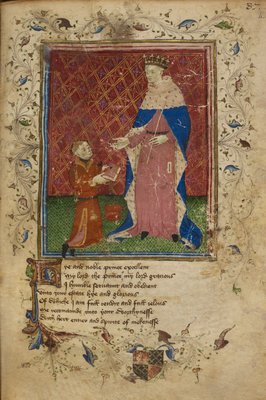 37
Hye and noble prince excellent
My lord the prince my lord gracious
I humble servaunt and obedient
Unto your estate hye and glorious
Of whiche I am full tendir and full ielous
Me recomaunde unto your worthynesse
With hert enter and spirite of mekenesse